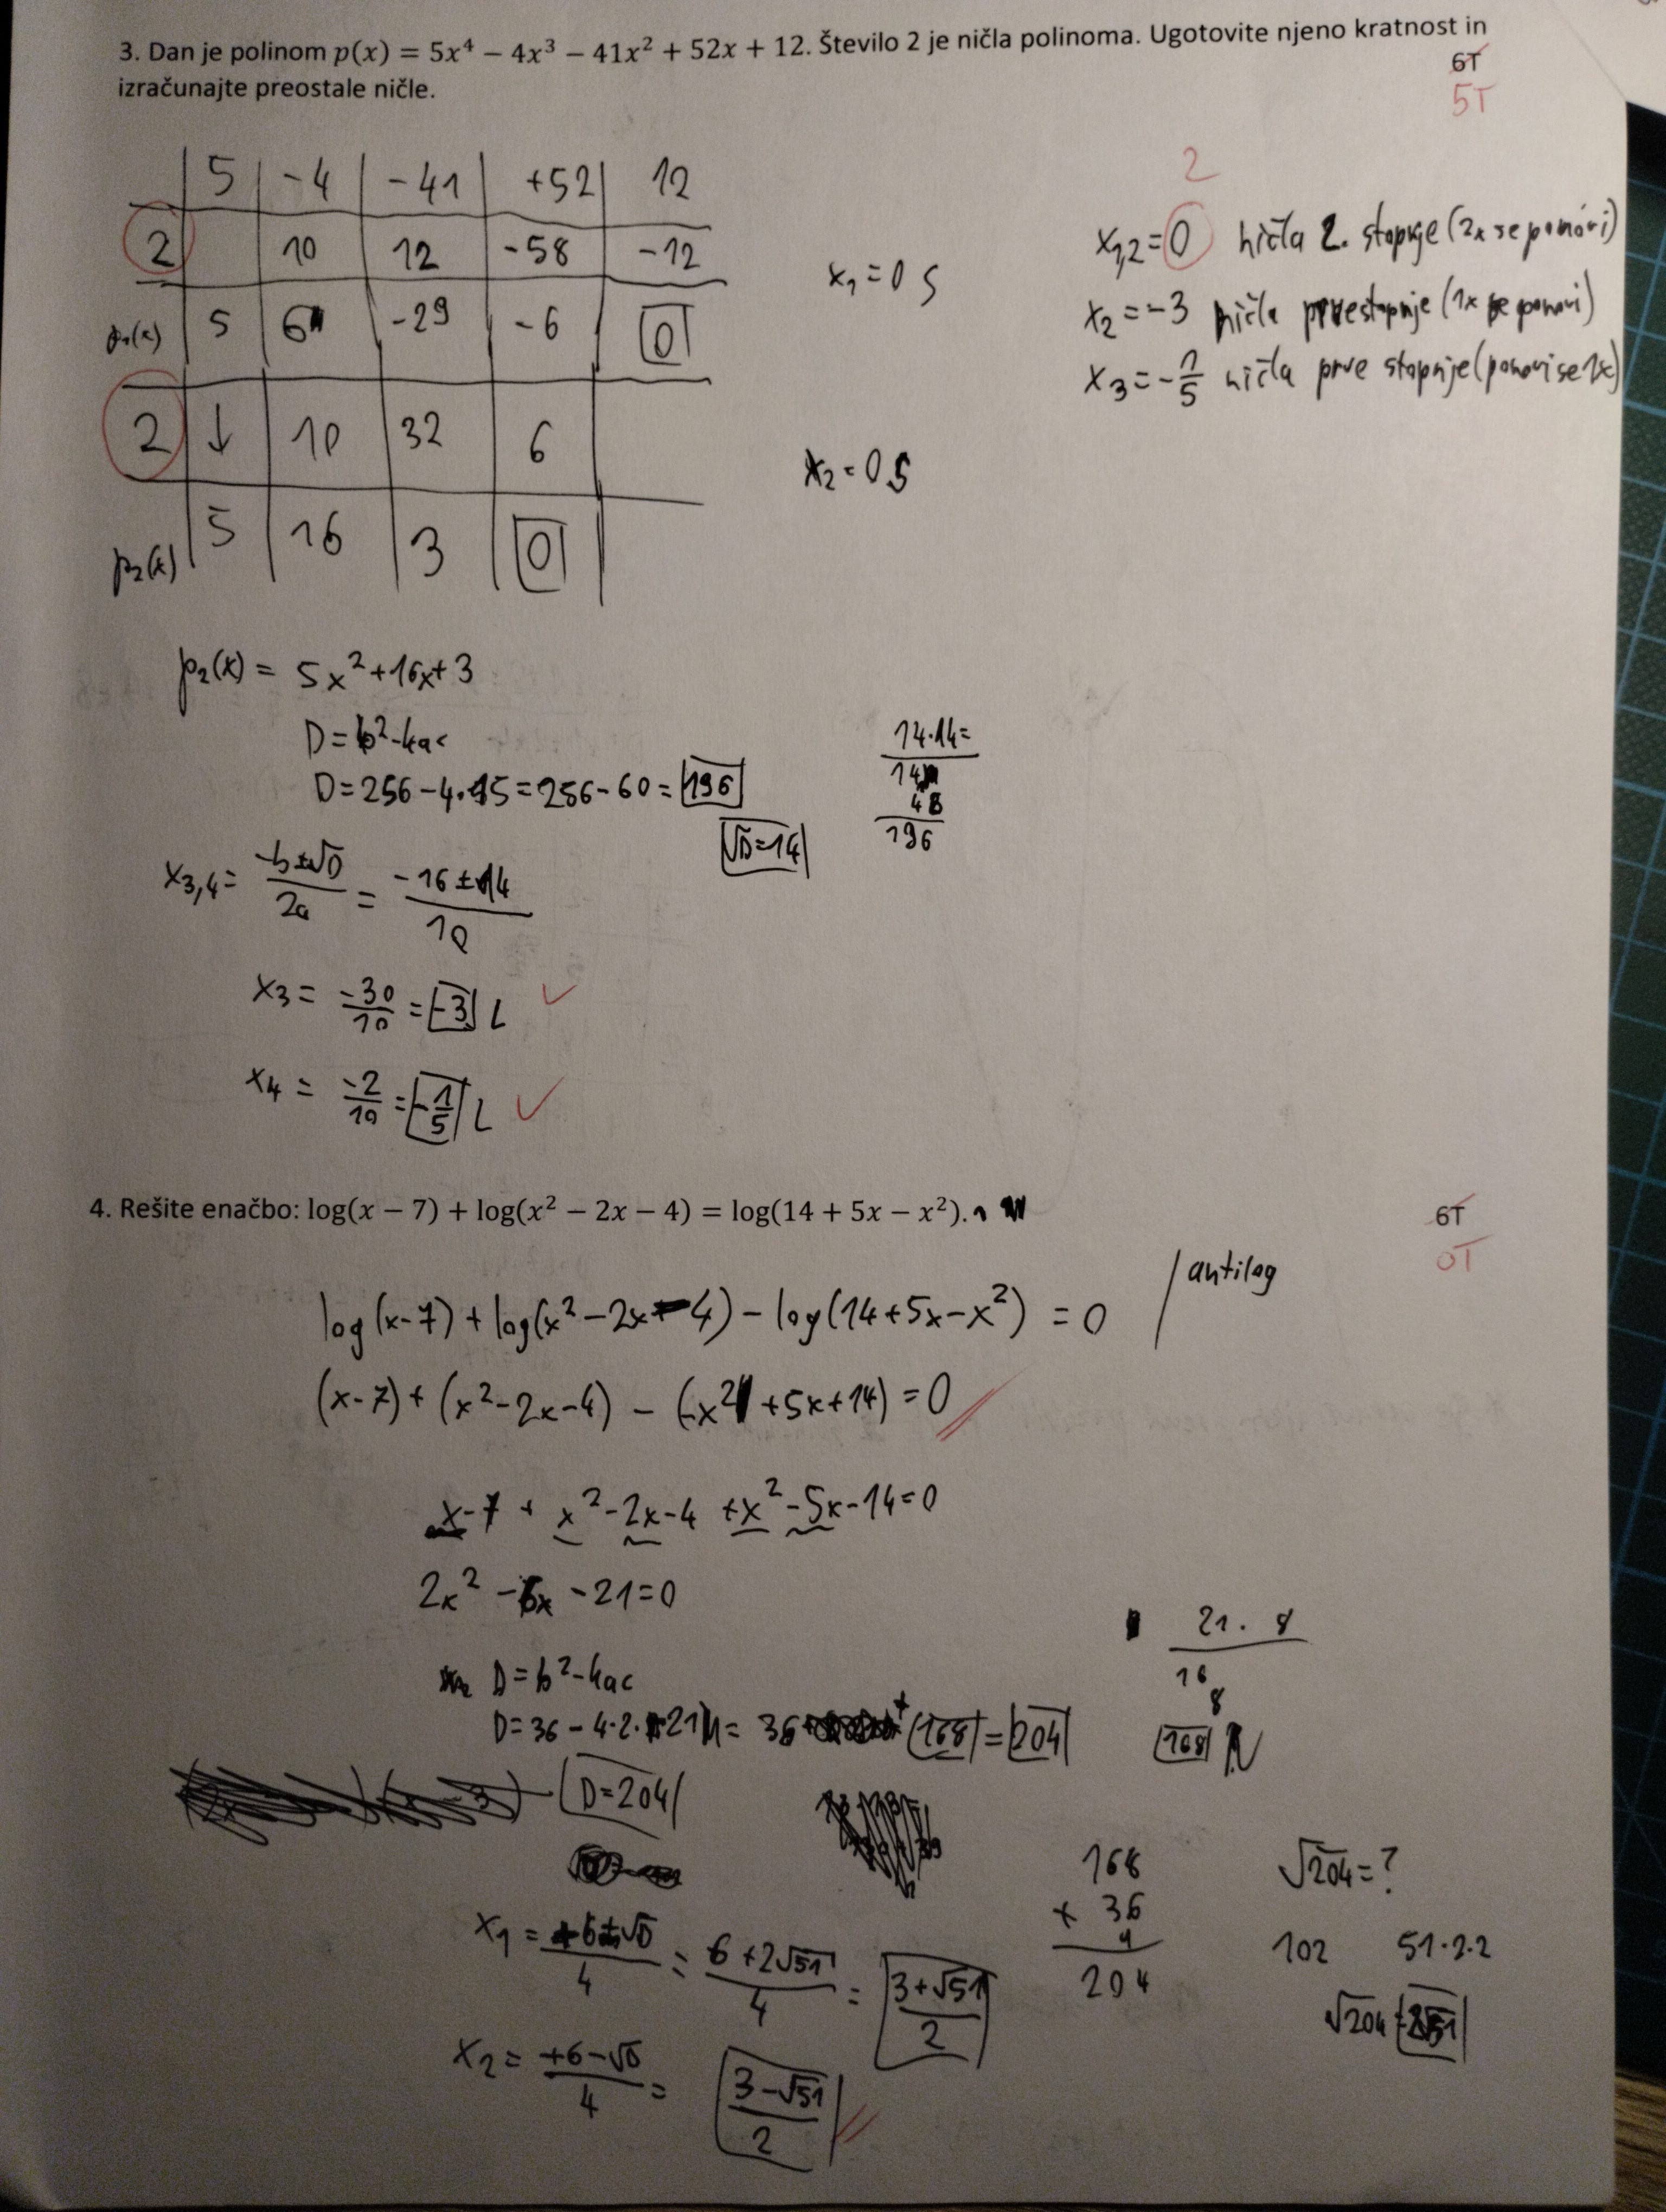 3. Dan je polinom p(x) = 5x⁴ − 4x³ − 41x² + 52x + 12. Število 2 je ničla polinoma. Ugotovite njeno kratnost in
izračunajte preostale ničle.
6T
5T
5 -4 -41 +52 12
2 10 12 -58 -12
p₁(x) 5 6 -29 -6 0
2 ↓ 10 32 6
p₂(x) 5 16 3 0
x₁=0
x₂=0
2
x₁,₂=0 ničla 2. stopnje (2x se ponovi)
x₂=-3 ničla prve stopnje (1x se ponovi)
x₃=-1/5 ničla prve stopnje (ponovi se 1x)
p₂(x) = 5x²+16x+3
D=b²-4ac
D=256-4·15=256-60=196
√D=14
14·14=
14
48
196
x₃,₄= (-b±√D)/2a = (-16±14)/10
x₃= -30/10 = -3 ✓
x₄ = -2/10 = -1/5 ✓
4. Rešite enačbo: log(x − 7) + log(x² − 2x − 4) = log(14 + 5x − x²).
6T
0T
log(x-7)+log(x²-2x-4)-log(14+5x-x²) = 0 / antilog
(x-7)+(x²-2x-4) - (-x²+5x+14)=0
x-7 + x²-2x-4 +x²-5x-14=0
2x² -6x -21=0
D=b²-4ac
D=36-4·2·-21= 36 + 168 = 204
D=204
21·8
16
8
168
168
+ 36
204
√204=?
102 51·2·2
√204=2√51
x₁= (+6+√D)/4 = (6+2√51)/4 = (3+√51)/2
x₂= (+6-√D)/4 = (3-√51)/2